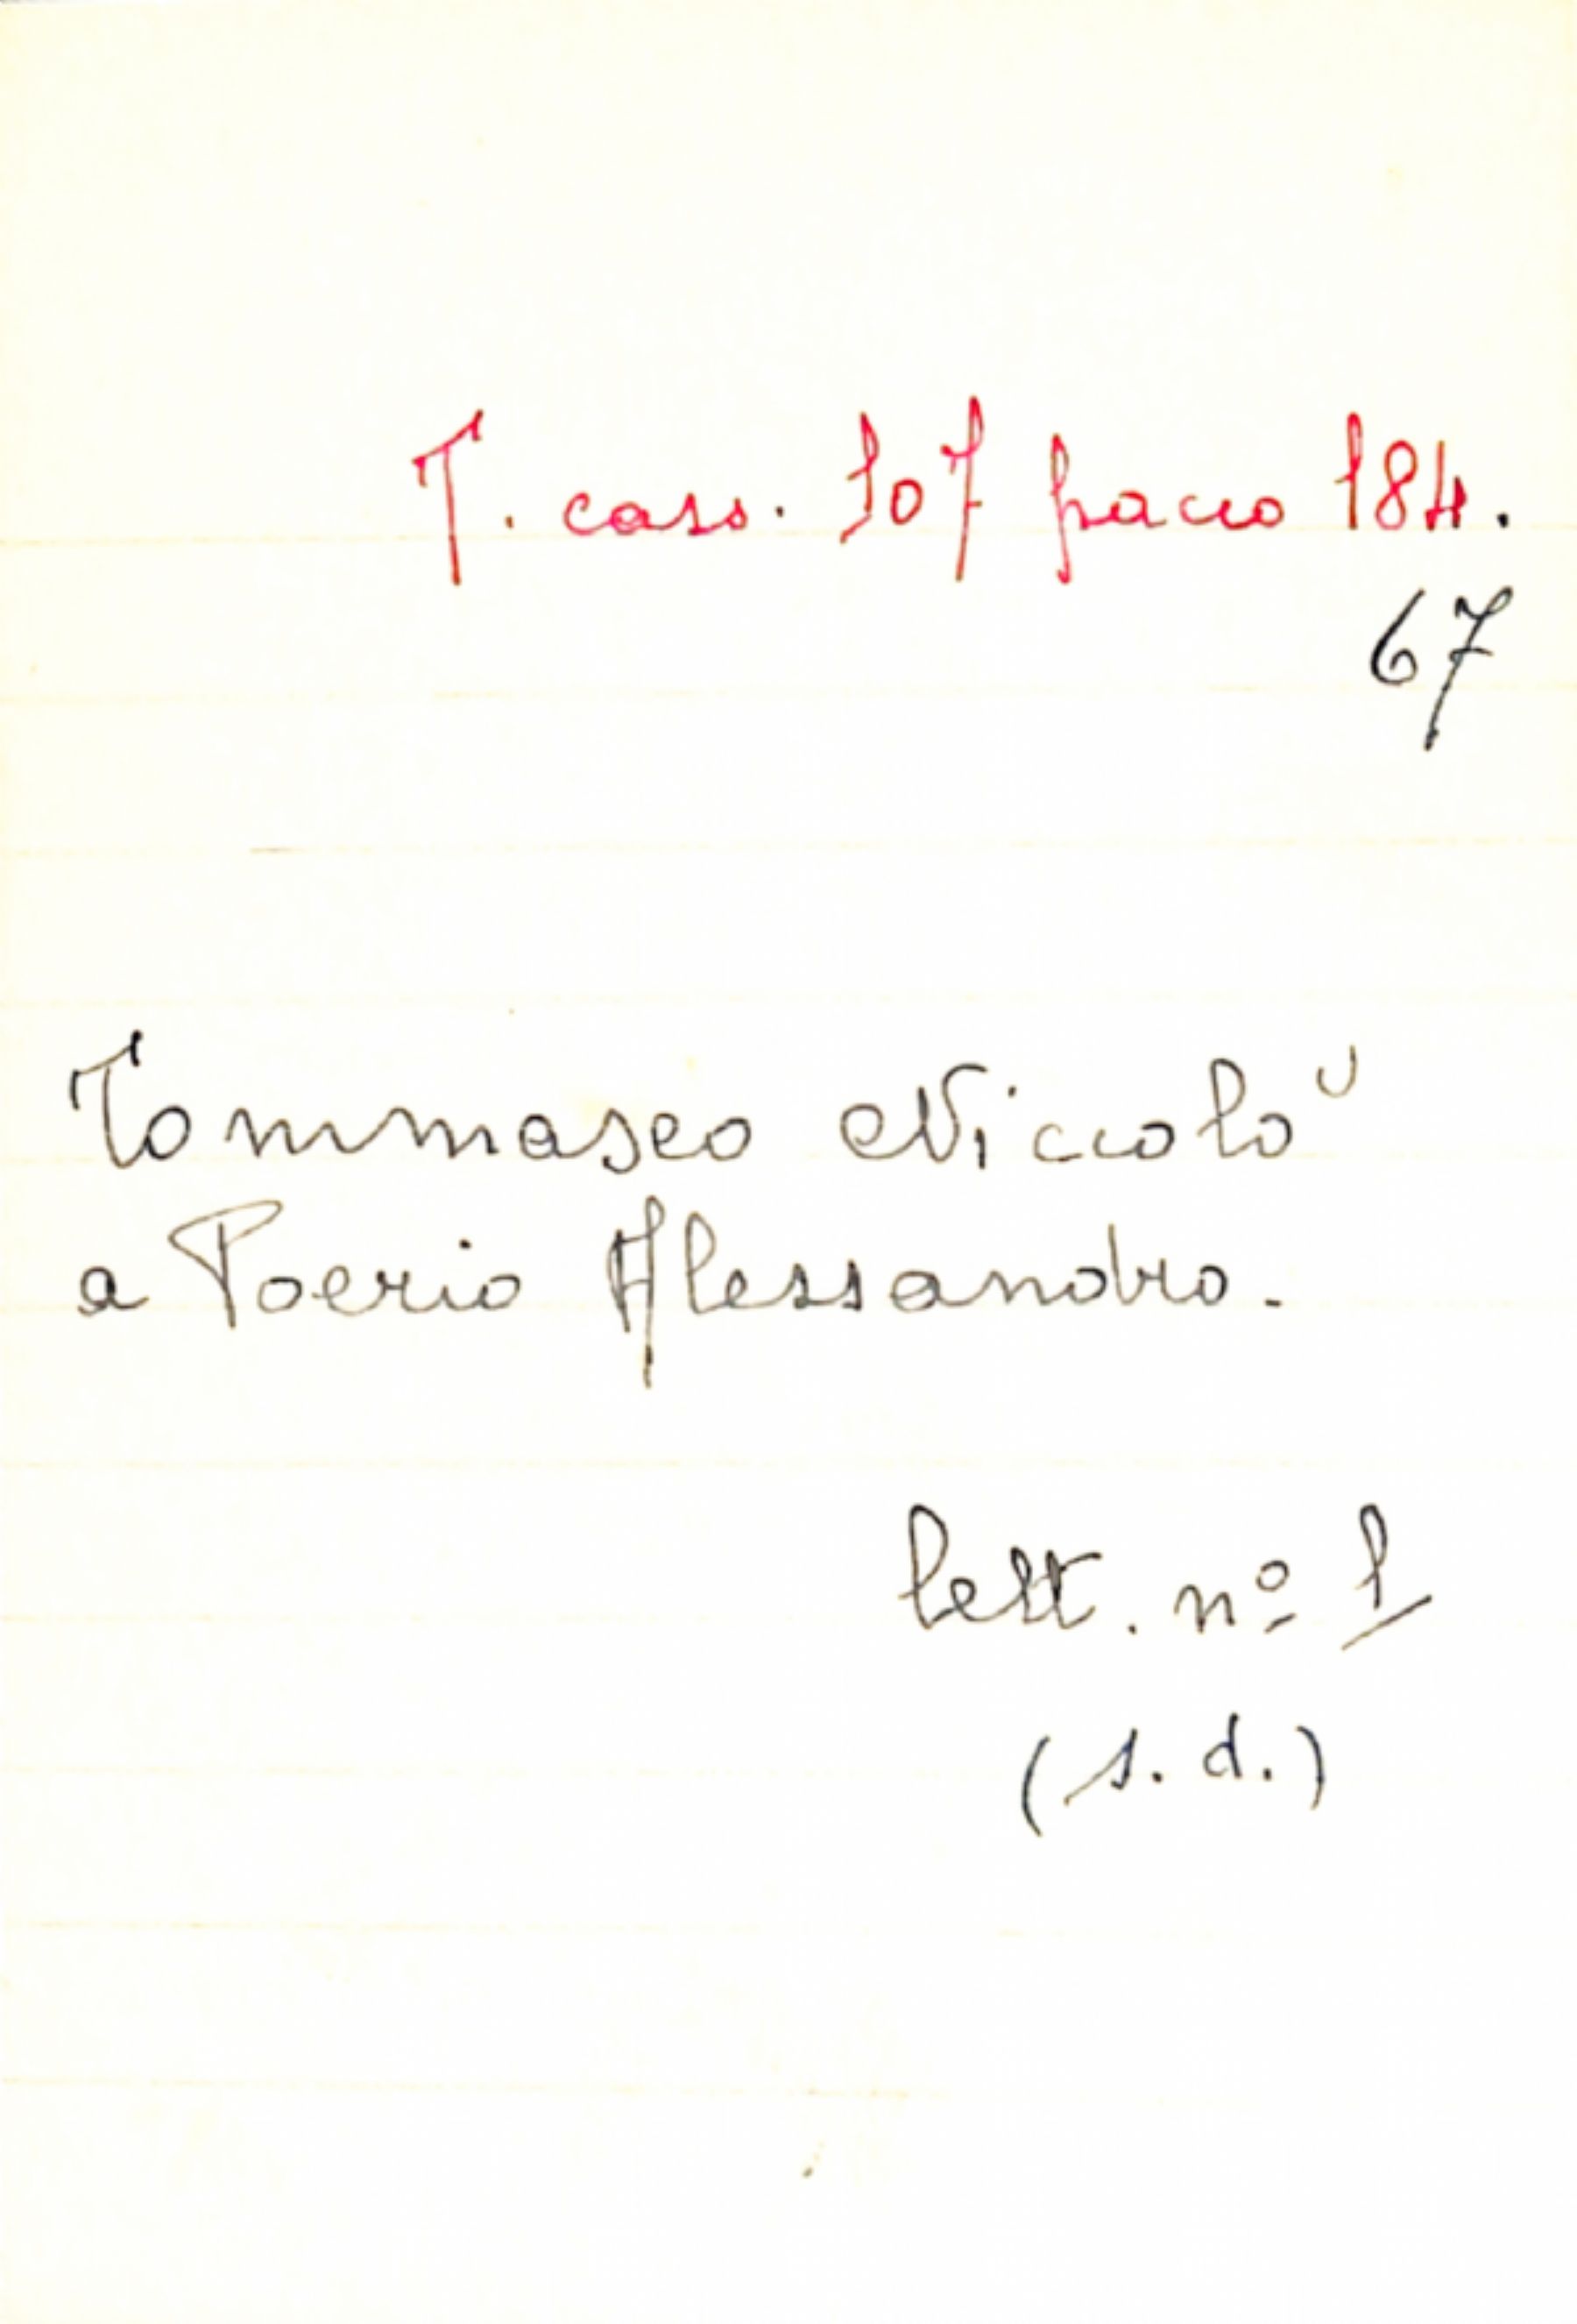 T. cass. 107 pacco 184.
67
Tommaseo Niccolò
a Poerio Alessandro.
lett. nº 1
(s. d.)